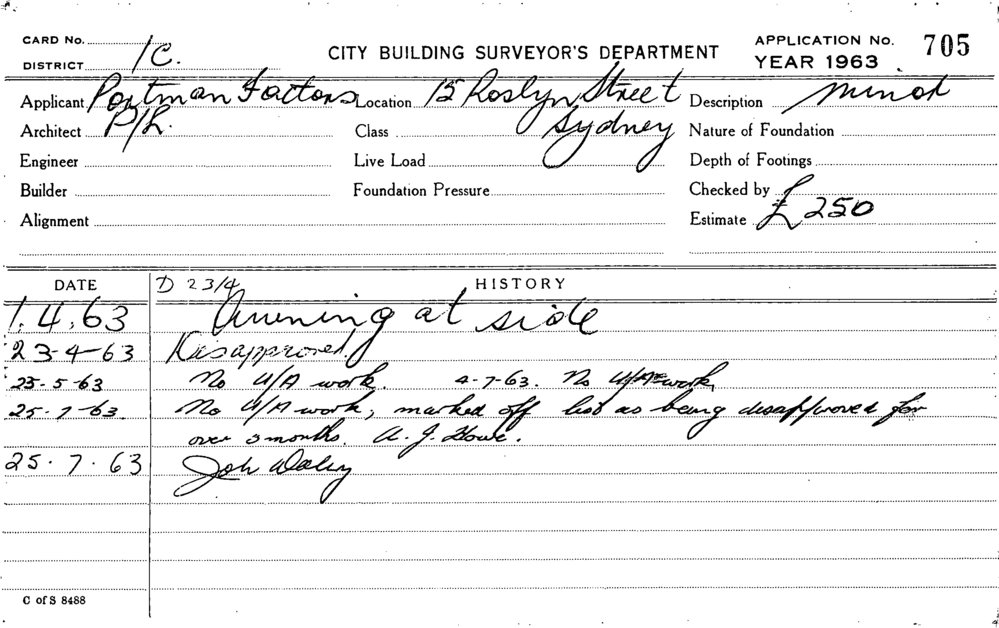 CARD No.
DISTRICT 1C.
CITY BUILDING SURVEYOR'S DEPARTMENT
APPLICATION No. 705
YEAR 1963
Applicant Portman Factors Location 15 Roslyn Street Description minor
Architect P/L. Class Sydney Nature of Foundation
Engineer Live Load Depth of Footings
Builder Foundation Pressure Checked by
Alignment Estimate £250
DATE D 23/4 HISTORY
1.4.63 Awning at side
23-4-63 Disapproved.
23-5-63 No U/A work. 4-7-63. No U/A work
25-7-63 No U/A work, marked off list as being disapproved for
over 3 months. A. J. Howe.
25.7.63
C of S 8488